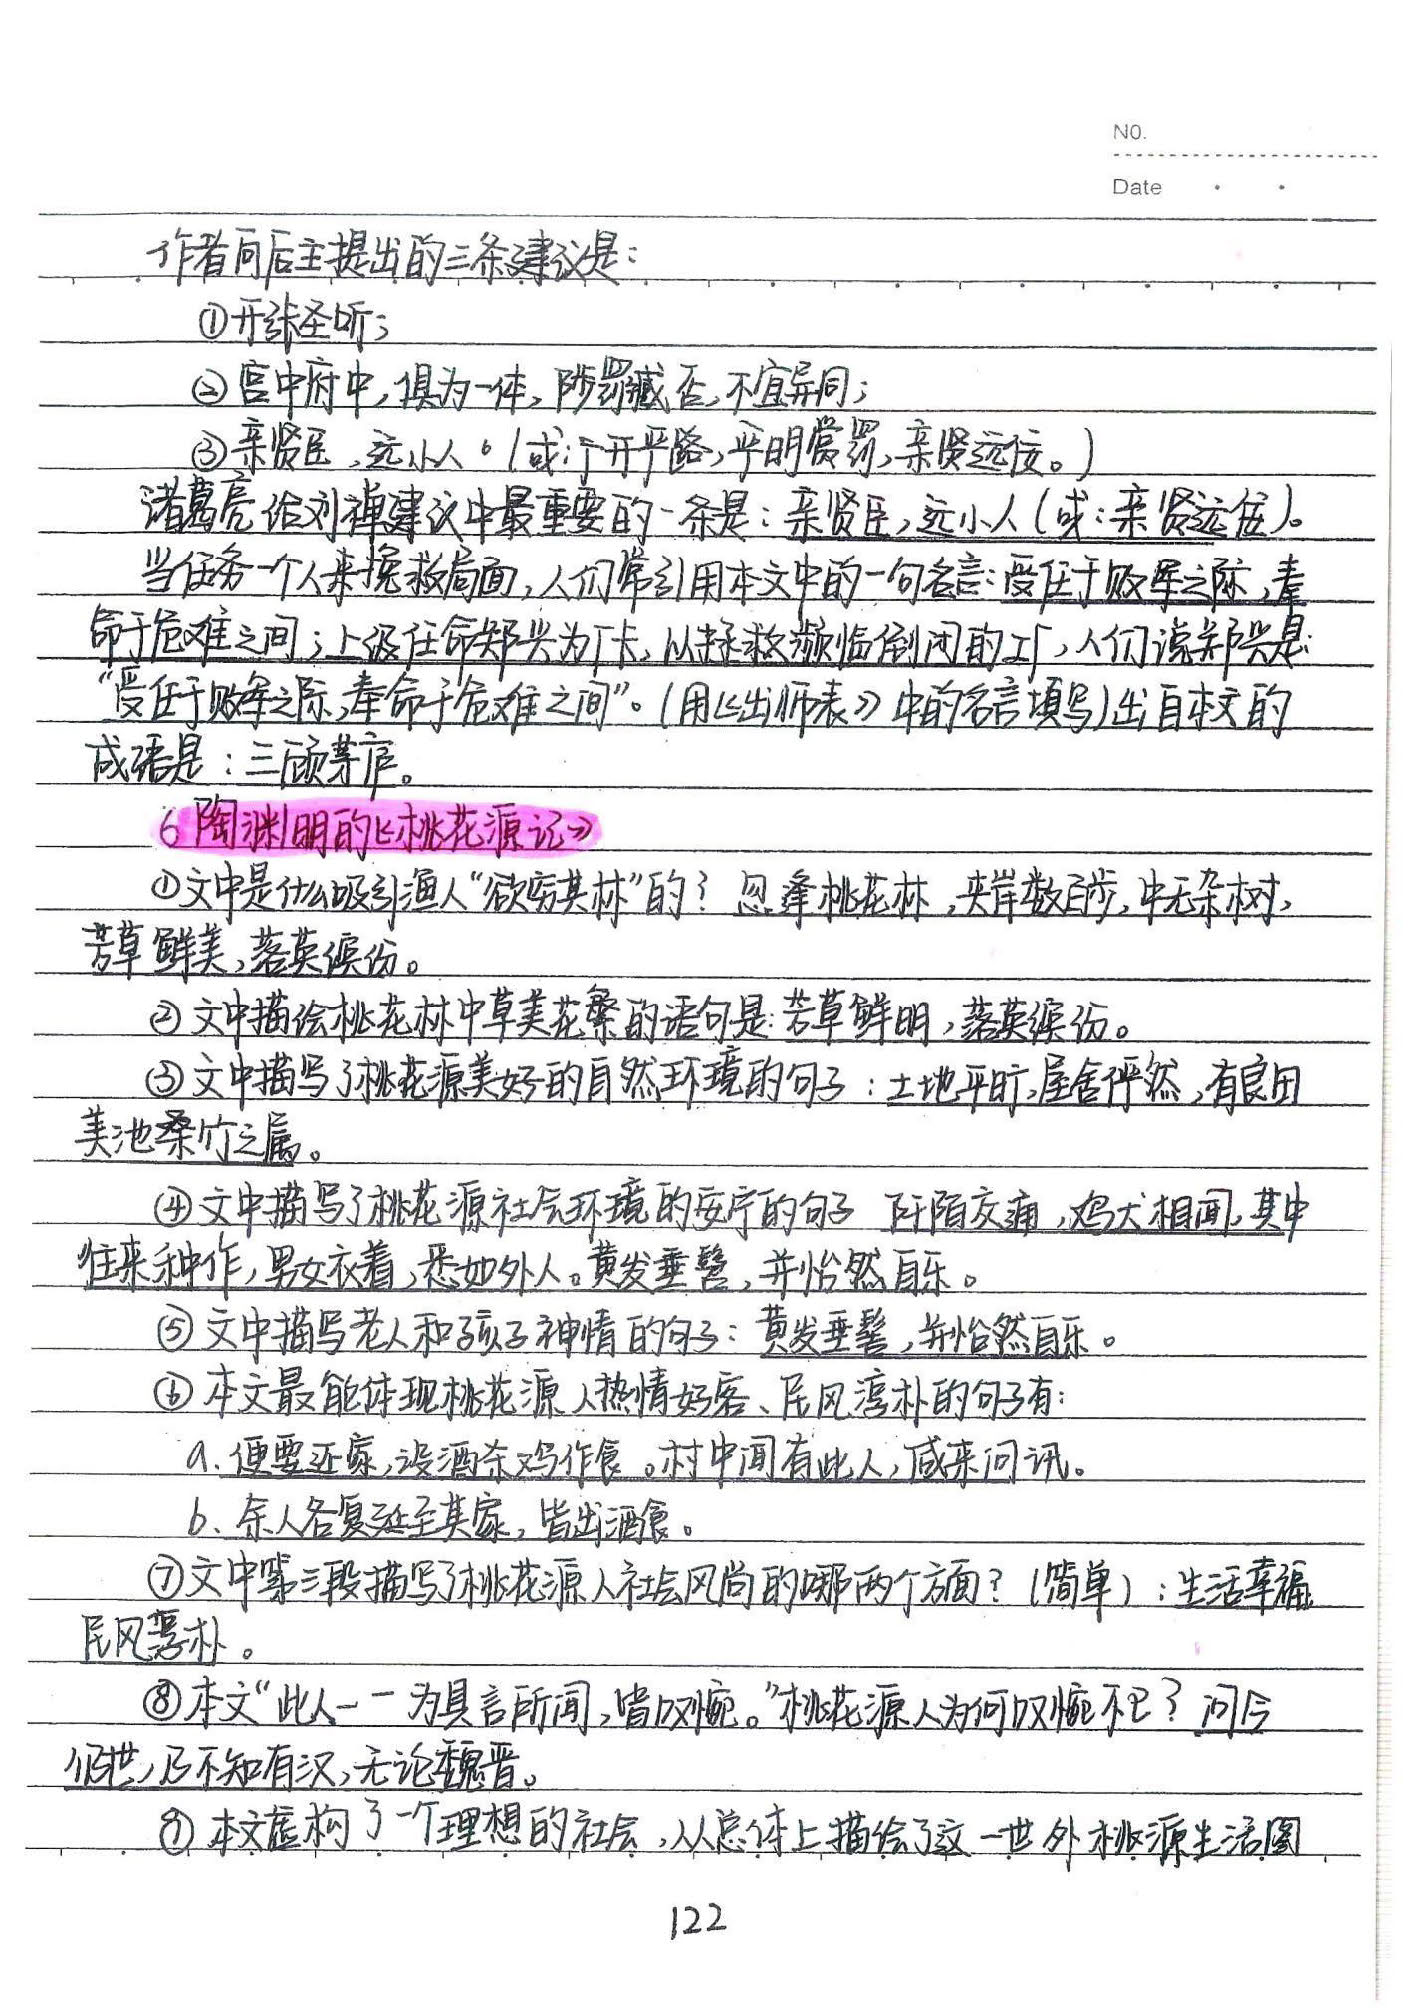 NO.
Date
作者向后主提出的三条建议是：
①开张圣听；
②宫中府中，俱为一体，陟罚臧否，不宜异同；
③亲贤臣，远小人。（或：广开严路，平明赏罚，亲贤远佞。）
诸葛亮给刘禅建议中最重要的一条是：亲贤臣，远小人（或：亲贤远佞）。
当任务一个人来挽救局面，人们常引用本文中的一句名言：受任于败军之际，奉
命于危难之间；上级任命郑兴为厂长，以拯救濒临倒闭的工厂，人们说郑兴是
“受任于败军之际，奉命于危难之间”。（用《出师表》中的名言填写）出自本文的
成语是：三顾茅庐。
6 陶渊明的《桃花源记》
①文中是什么吸引渔人“欲穷其林”的？忽逢桃花林，夹岸数百步，中无杂树，
芳草鲜美，落英缤纷。
②文中描绘桃花林中草美花繁的语句是：芳草鲜明，落英缤纷。
③文中描写了桃花源美好的自然环境的句子：土地平旷，屋舍俨然，有良田
美池桑竹之属。
④文中描写了桃花源社会环境的安宁的句子 阡陌交通，鸡犬相闻，其中
往来种作，男女衣着，悉如外人。黄发垂髫，并怡然自乐。
⑤文中描写老人和孩子神情的句子：黄发垂髫，并怡然自乐。
⑥本文最能体现桃花源人热情好客、民风淳朴的句子有：
a. 便要还家，设酒杀鸡作食。村中闻有此人，咸来问讯。
b、余人各复延至其家，皆出酒食。
⑦文中第三段描写了桃花源人社会风尚的哪两个方面？（简单）：生活幸福
民风淳朴。
⑧本文“此人一一为具言所闻，皆叹惋。”桃花源人为何叹惋不已？问今
何世，乃不知有汉，无论魏晋。
⑨本文虚构了一个理想的社会，从总体上描绘了这一世外桃源生活图
122